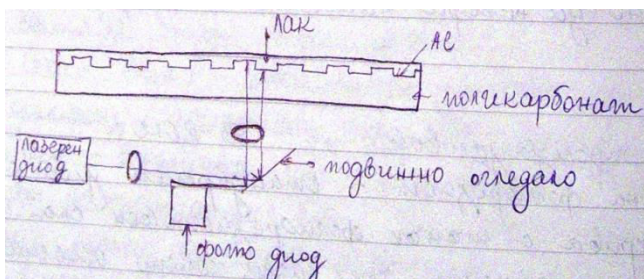 лак
Al
поликарбонат
лазерен
диод
подвижно огледало
фото диод